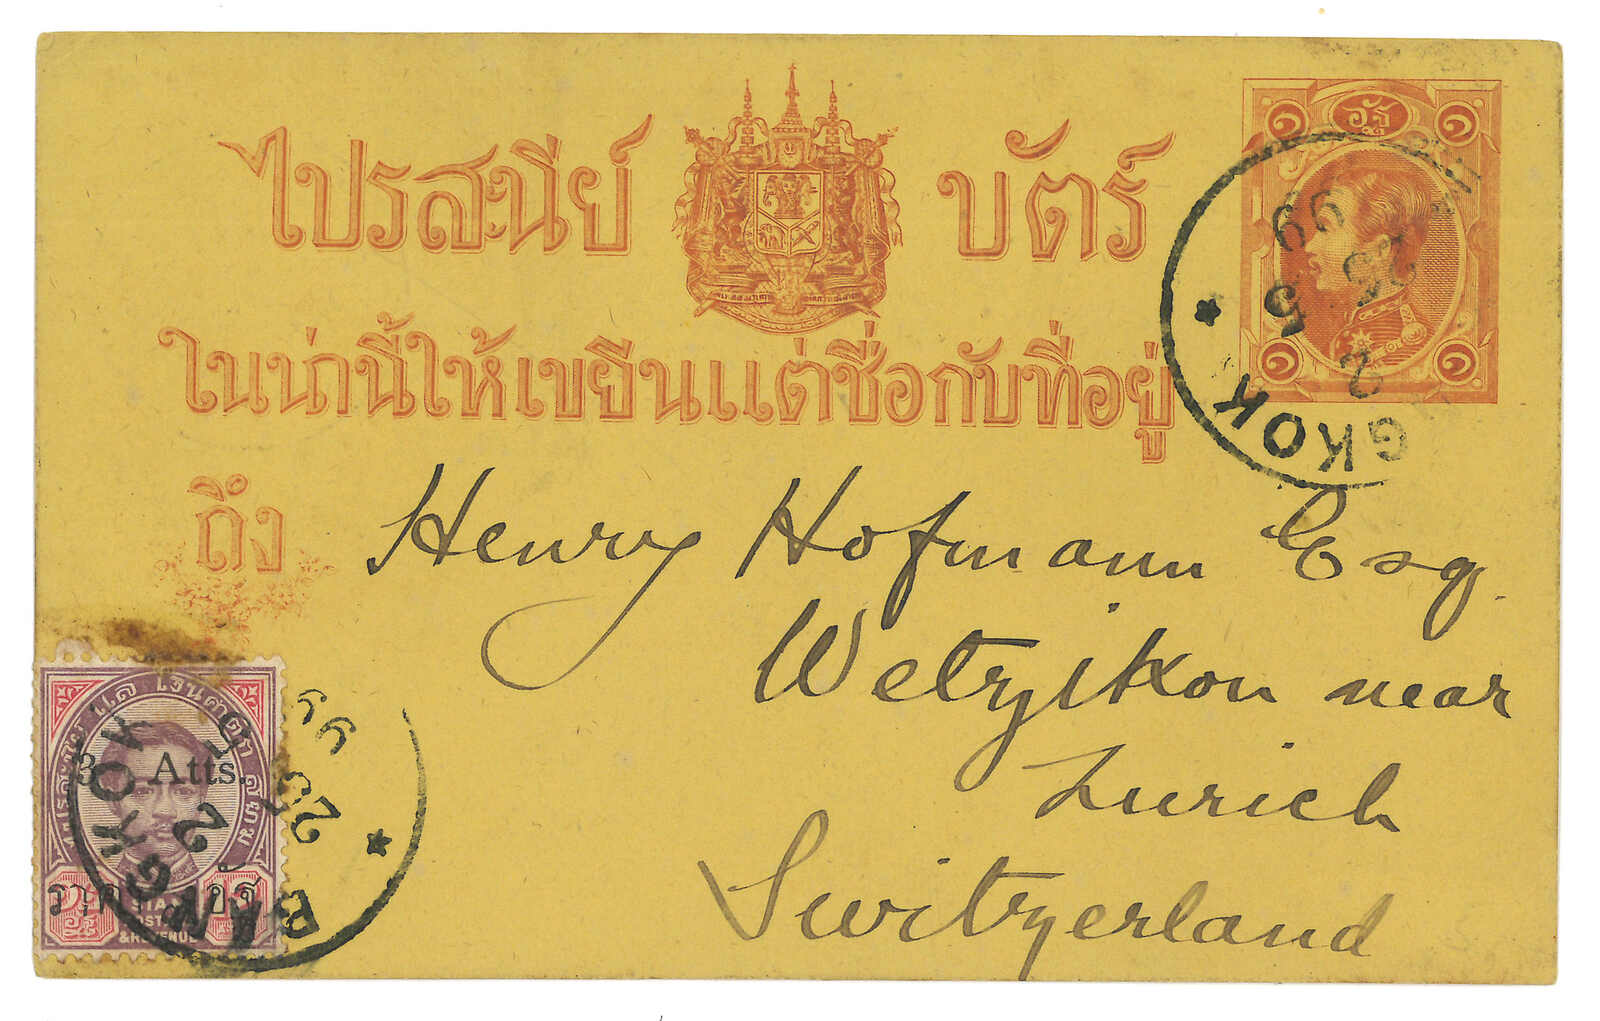 ไปรสะนีย์ บัตร์
ในน่านี้ให้เขยีนแต่ชื่อกับที่อยู่
ถึง
๑ อัฐ ๑
๑ ๑
BANGKOK
2 5 99
GKOK
2 5 99
Henry Hofmann Esq.
Wetzikon near
Zurich
Switzerland
3 Atts.
& REVENUE